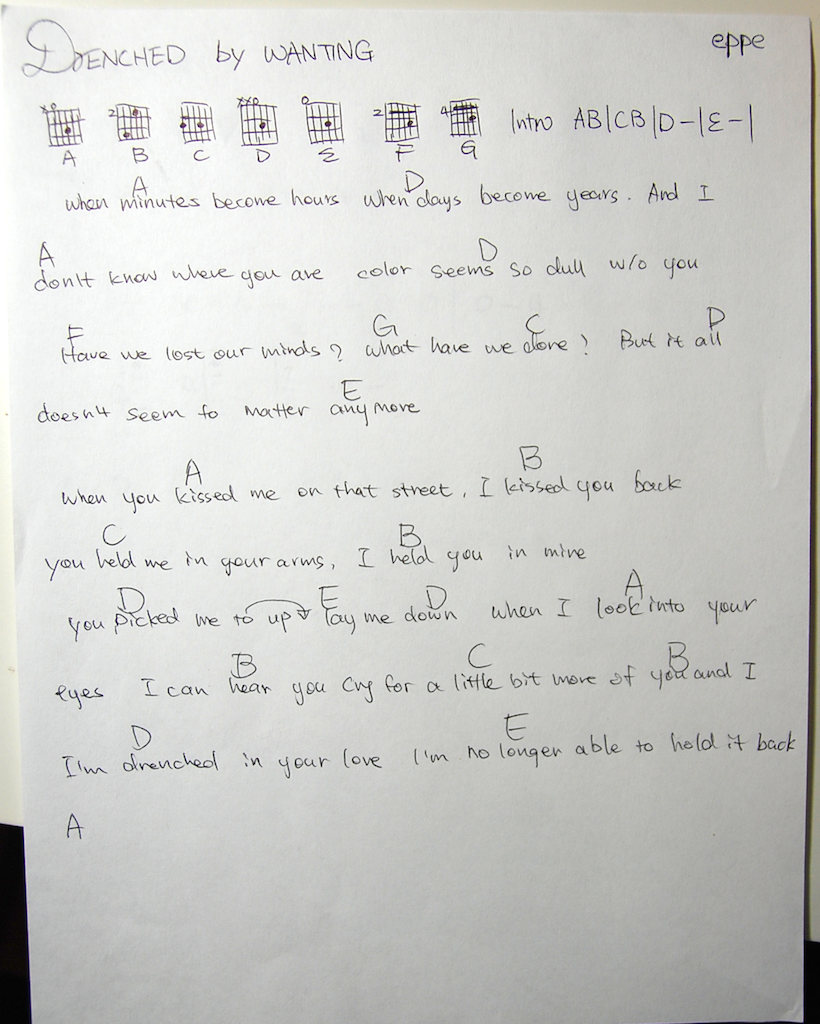 DRENCHED by WANTING eppe
x o 2 xxo o 2 4 Intro AB|CB|D-|E-|
A B C D E F G
A D
when minutes become hours when days become years. And I
A D
don't know where you are color seems so dull w/o you
F G C D
Have we lost our minds? what have we done? But it all
E
doesn't seem to matter anymore
A B
when you kissed me on that street, I kissed you back
C B
you held me in your arms, I held you in mine
D E D A
you picked me to up lay me down when I look into your
B C B
eyes I can hear you cry for a little bit more of you and I
D E
I'm drenched in your love I'm no longer able to hold it back
A